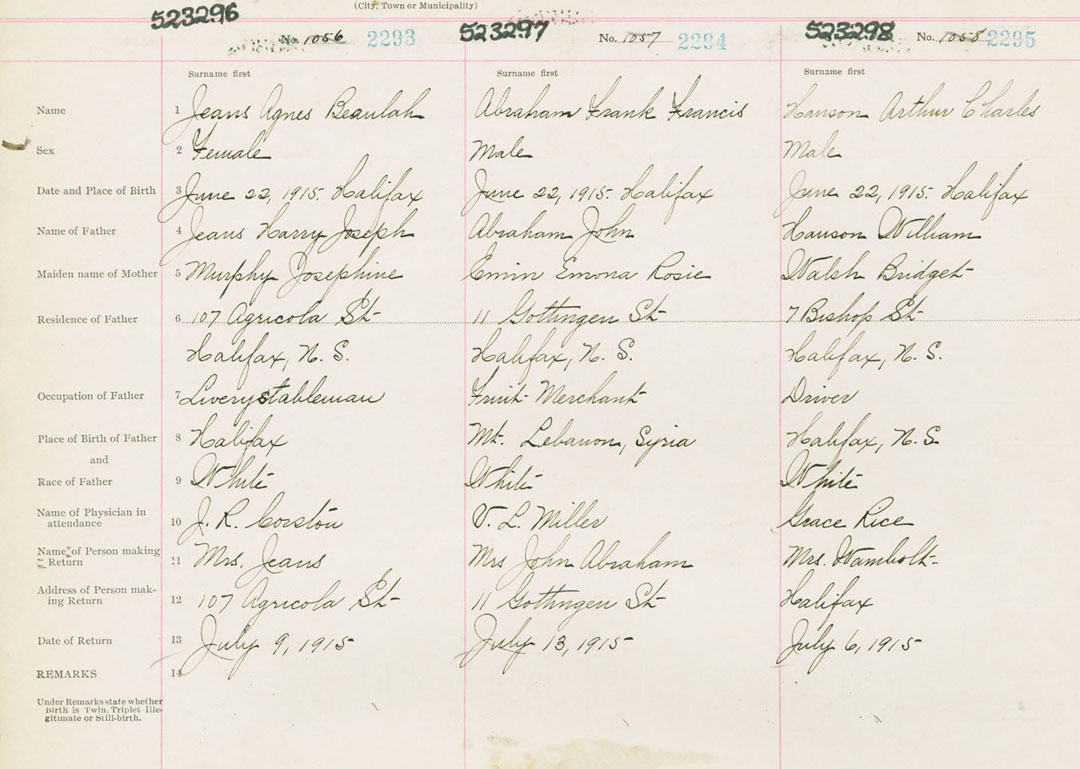 (City, Town or Municipality)
523296 523297 523298
No. 1056 2293 No. 1057 2294 No. 1058 2295
Surname first Surname first Surname first
Name 1 Jeans Agnes Beaulah Abraham Frank Francis Hanson Arthur Charles
Sex 2 Female Male Male
Date and Place of Birth 3 June 22, 1915. Halifax June 22, 1915. Halifax June 22, 1915. Halifax
Name of Father 4 Jeans Harry Joseph Abraham John Hanson William
Maiden name of Mother 5 Murphy Josephine Emin Emona Rosie Walsh Bridget
Residence of Father 6 107 Agricola St 11 Gottingen St 7 Bishop St
Halifax, N. S. Halifax, N. S. Halifax, N. S.
Occupation of Father 7 Liverystableman Fruit Merchant Driver
Place of Birth of Father 8 Halifax Mt. Lebanon, Syria Halifax, N. S
and
Race of Father 9 White White White
Name of Physician in
attendance 10 J. R. Corston V. L. Miller Grace Rice
Name of Person making
Return 11 Mrs. Jeans Mrs John Abraham Mrs. Wambolt
Address of Person mak-
ing Return 12 107 Agricola St 11 Gottingen St Halifax
Date of Return 13 July 9, 1915 July 13, 1915 July 6, 1915
REMARKS 14
Under Remarks state whether
Birth is Twin, Triplet Ille-
gitimate or Still-birth.